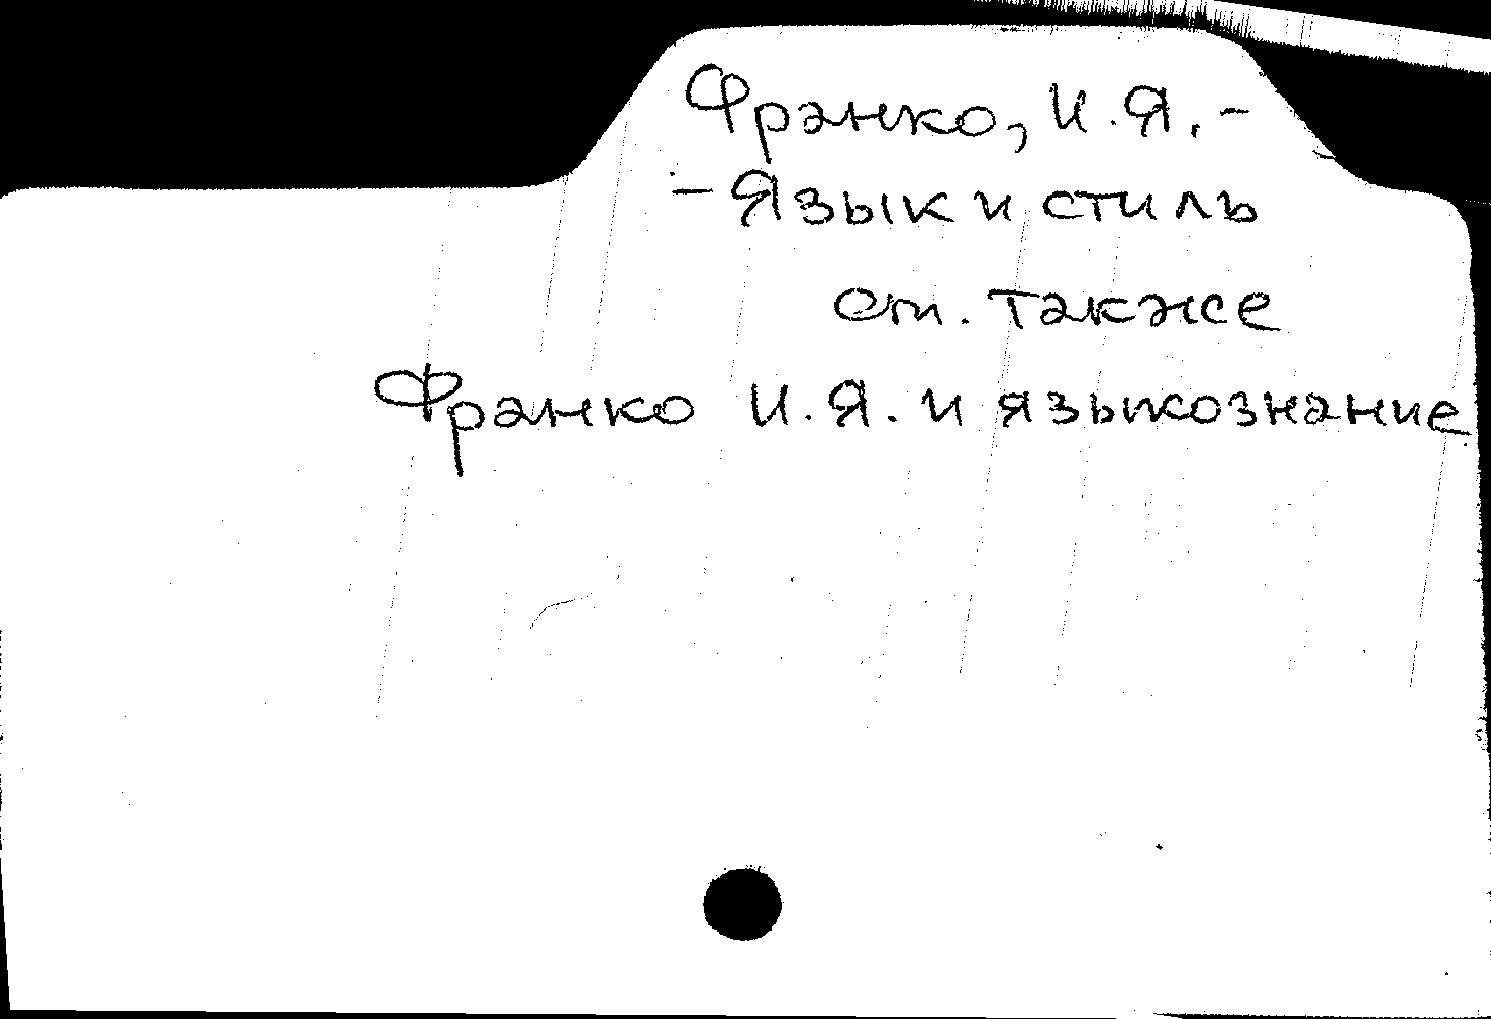 Франко, И.Я. -
- Язык и стиль
см. также
Франко И.Я. и языкознание